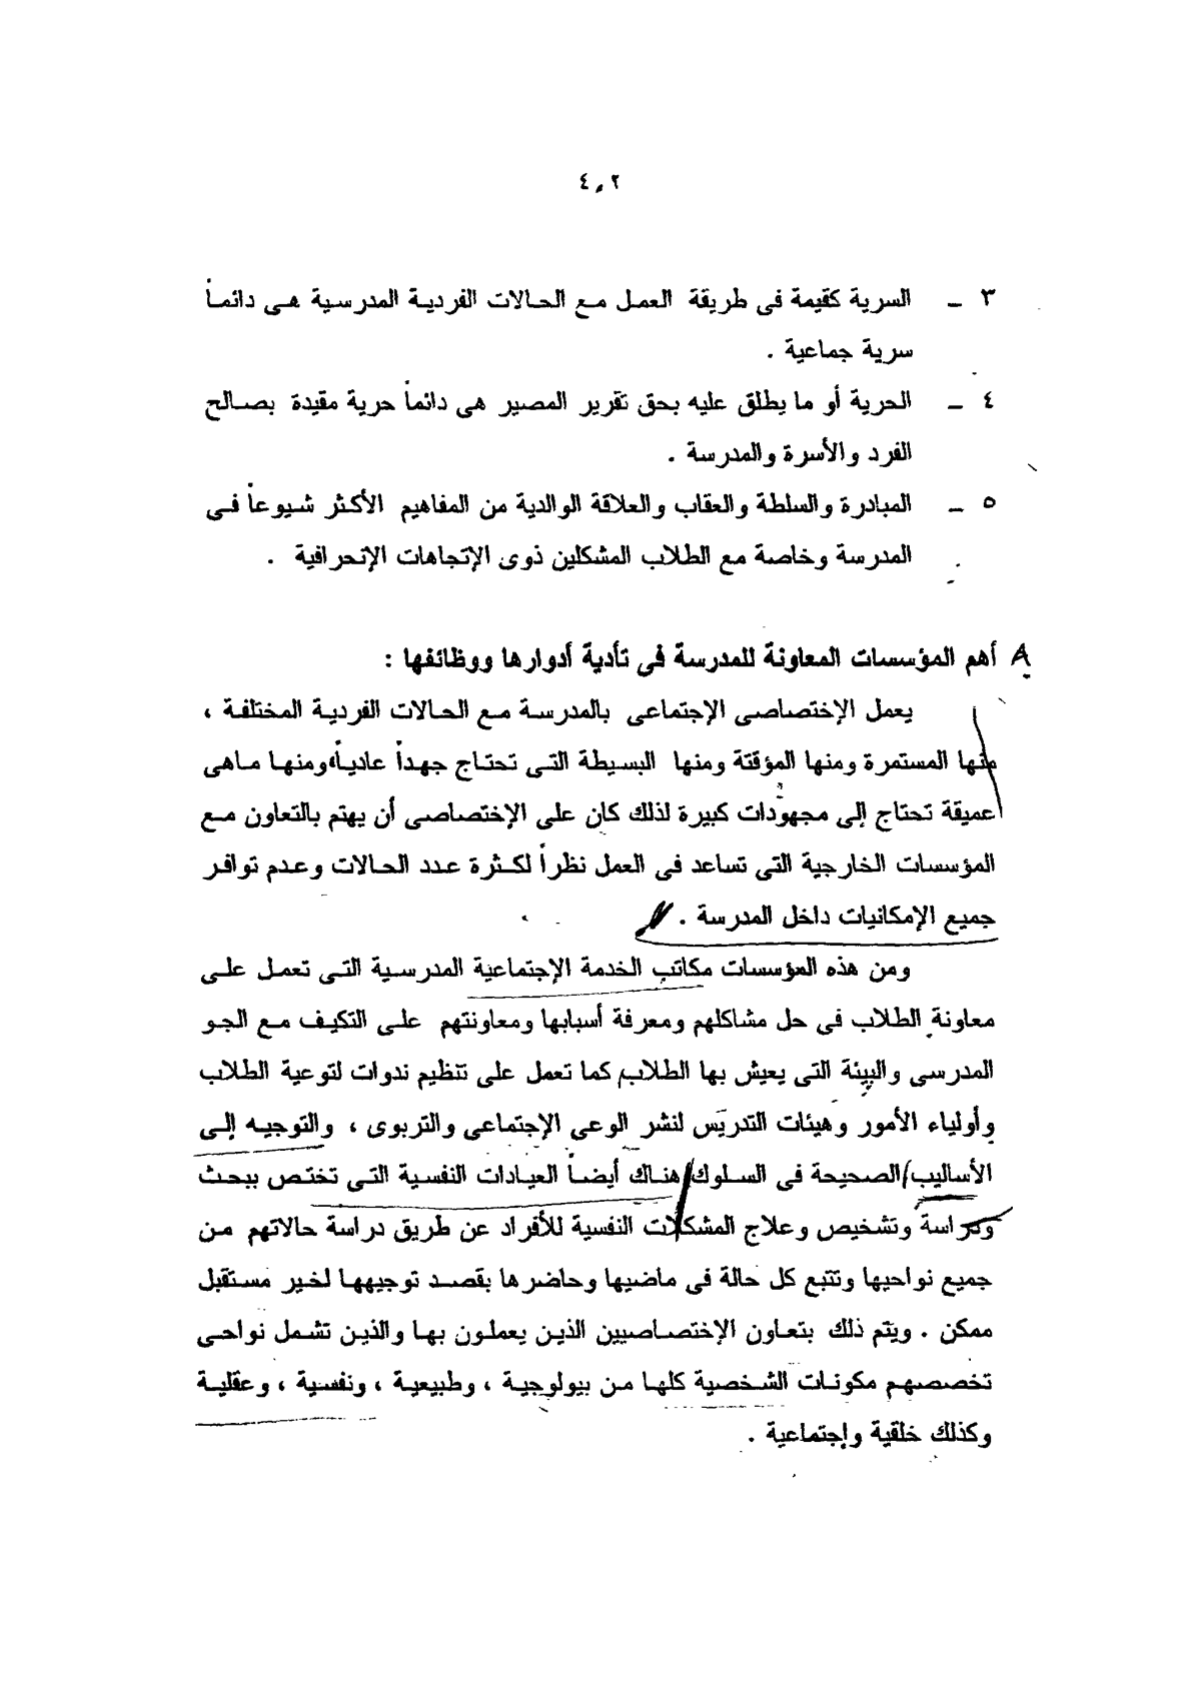 ٤٠٢
٣ – السرية كقيمة فى طريقة العمل مع الحالات الفردية المدرسية هى دائماً
سرية جماعية .
٤ – الحرية أو ما يطلق عليه بحق تقرير المصير هى دائماً حرية مقيدة بصالح
الفرد والأسرة والمدرسة .
٥ – المبادرة والسلطة والعقاب والعلاقة الوالدية من المفاهيم الأكثر شيوعاً فى
المدرسة وخاصة مع الطلاب المشكلين ذوى الإتجاهات الإنحرافية .
أهم المؤسسات المعاونة للمدرسة فى تأدية أدوارها ووظائفها :
يعمل الإختصاصى الإجتماعى بالمدرسة مع الحالات الفردية المختلفة ،
منها المستمرة ومنها المؤقتة ومنها البسيطة التى تحتاج جهداً عادياً، ومنها ماهى
عميقة تحتاج إلى مجهودات كبيرة لذلك كان على الإختصاصى أن يهتم بالتعاون مع
المؤسسات الخارجية التى تساعد فى العمل نظراً لكثرة عدد الحالات وعدم توافر
جميع الإمكانيات داخل المدرسة .
ومن هذه المؤسسات مكاتب الخدمة الإجتماعية المدرسية التى تعمل على
معاونة الطلاب فى حل مشاكلهم ومعرفة أسبابها ومعاونتهم على التكيف مع الجو
المدرسى والبيئة التى يعيش بها الطلاب، كما تعمل على تنظيم ندوات لتوعية الطلاب
وأولياء الأمور وهيئات التدريس لنشر الوعى الإجتماعى والتربوى ، والتوجيه إلى
الأساليب الصحيحة فى السلوك هناك أيضاً العيادات النفسية التى تختص ببحث
ودراسة وتشخيص وعلاج المشكلات النفسية للأفراد عن طريق دراسة حالاتهم من
جميع نواحيها وتتبع كل حالة فى ماضيها وحاضرها بقصد توجيهها لخير مستقبل
ممكن . ويتم ذلك بتعاون الإختصاصيين الذين يعملون بها والذين تشمل نواحى
تخصصهم مكونات الشخصية كلها من بيولوجية ، وطبيعية ، ونفسية ، وعقلية
وكذلك خلقية وإجتماعية .